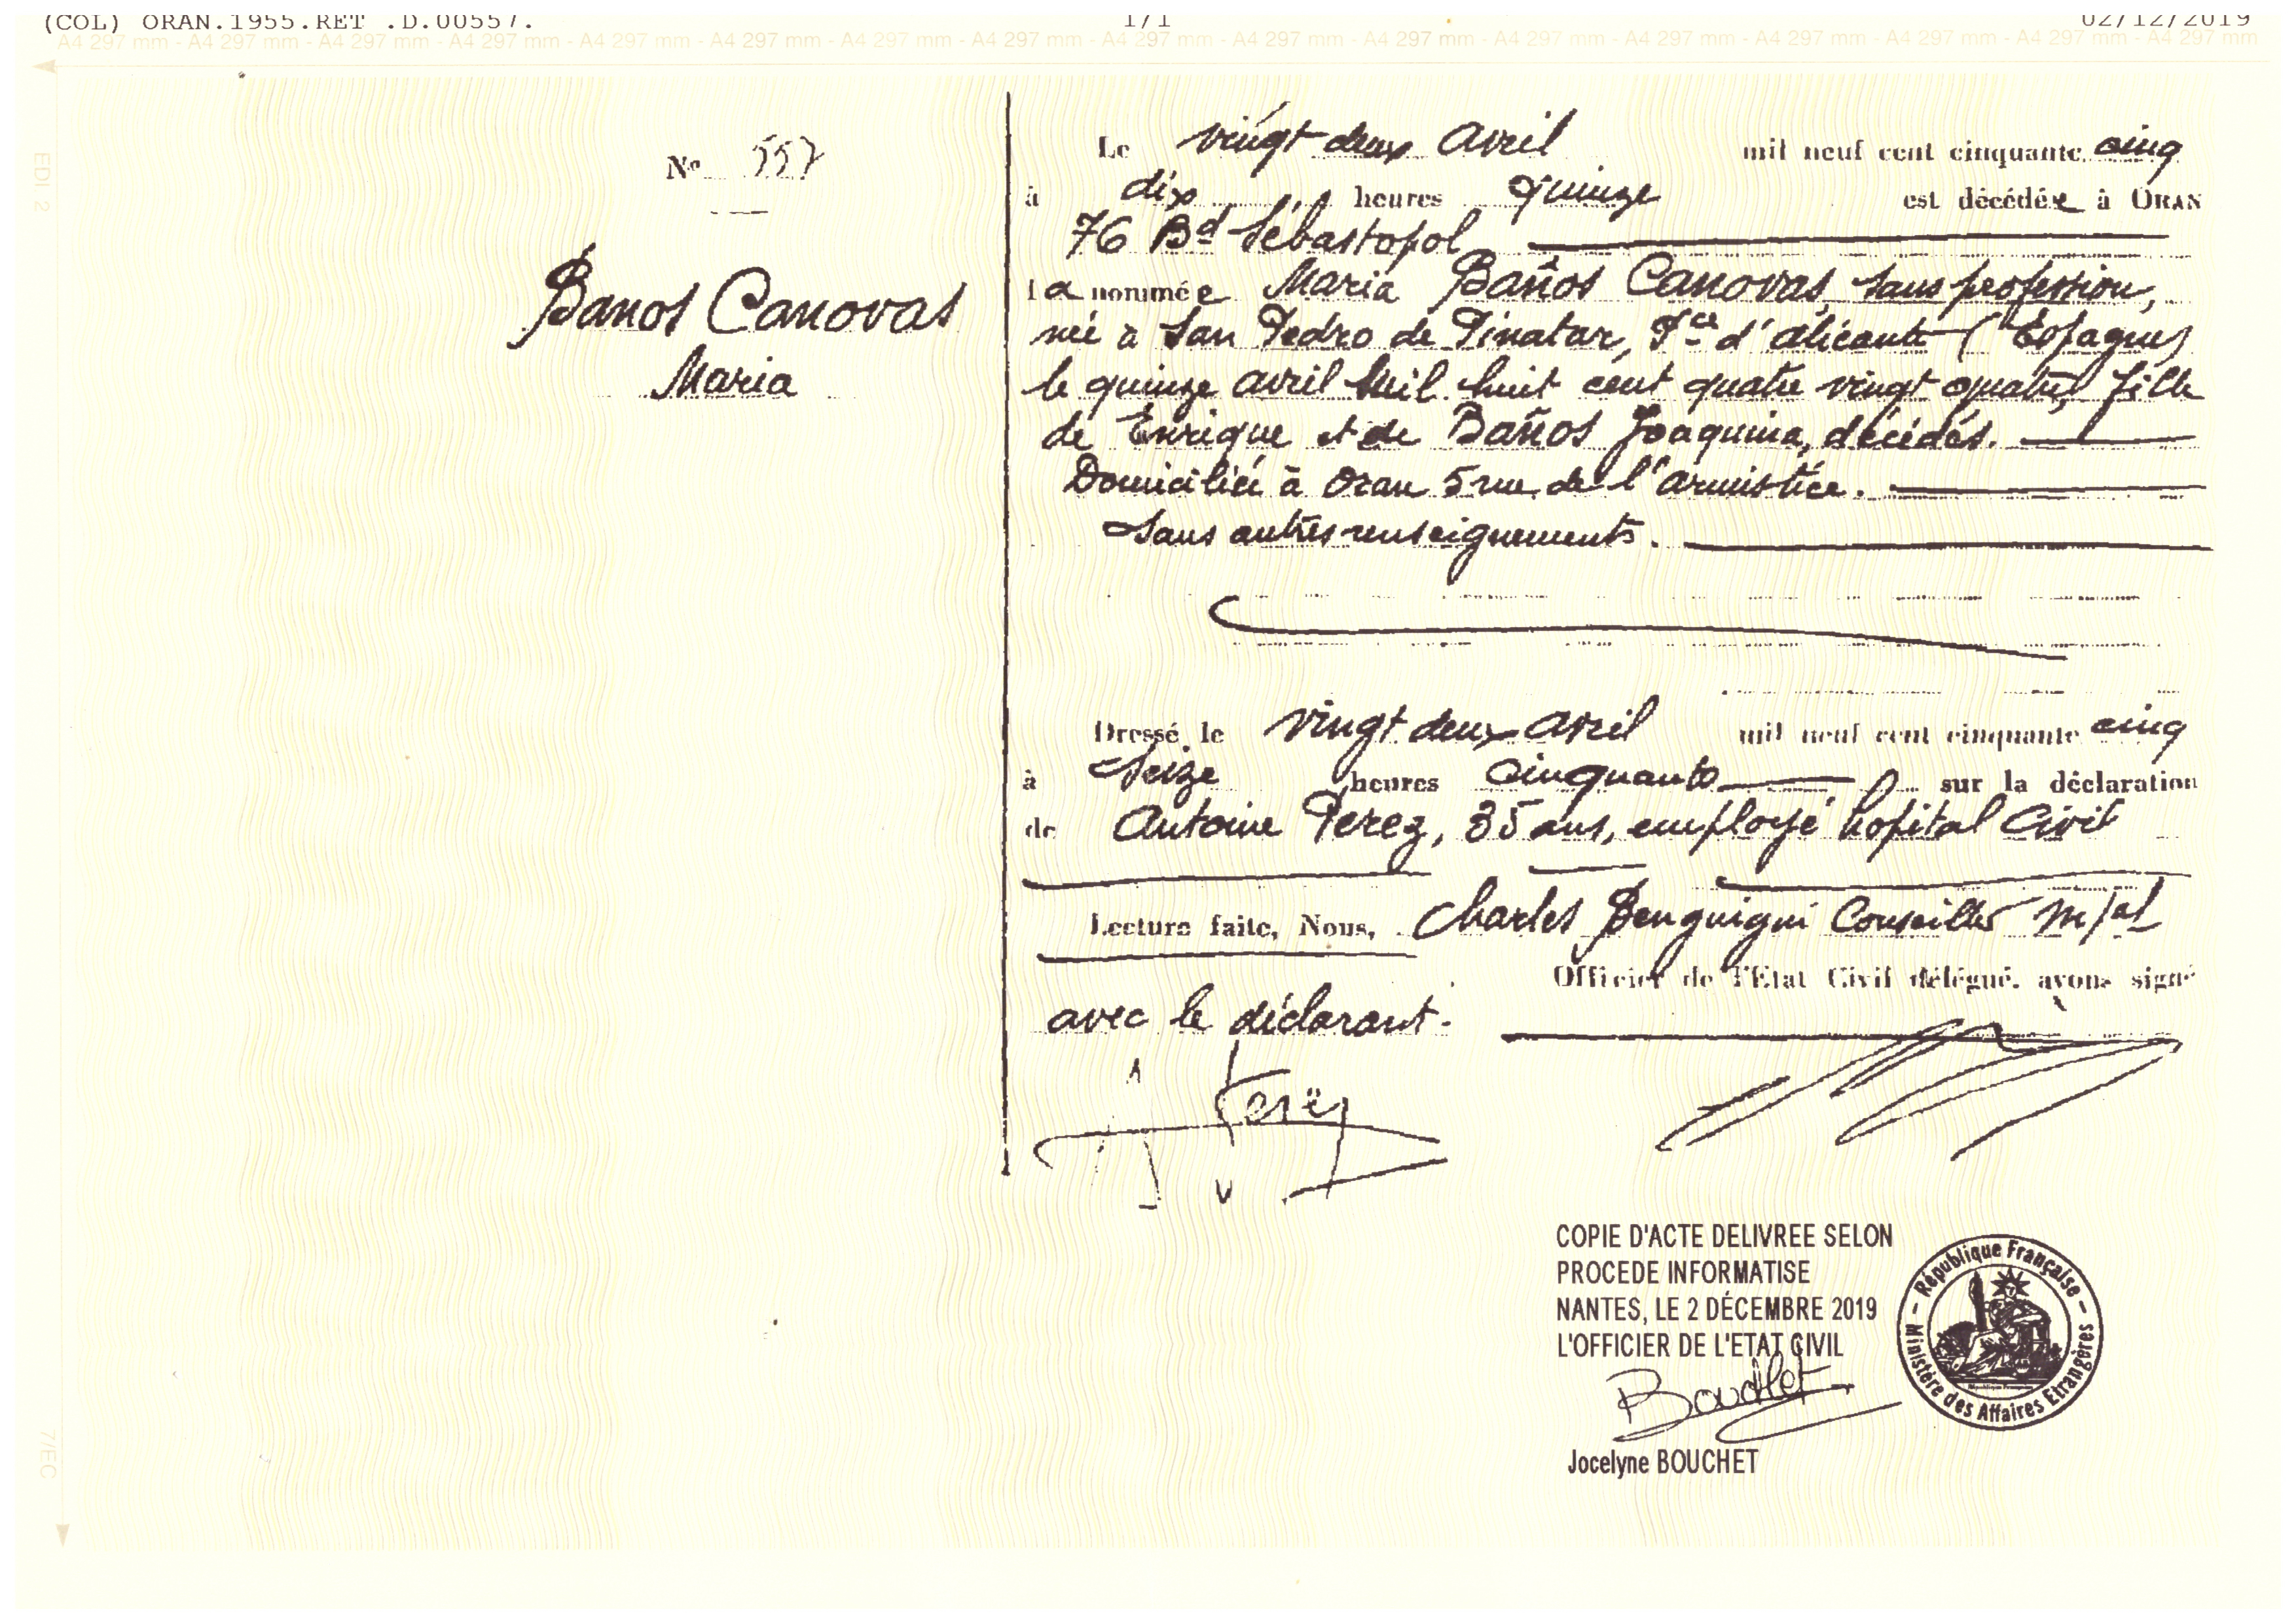 (COL) ORAN.1955.RET .D.00557. 1/1 02/12/2019
A4 297 mm - A4 297 mm - A4 297 mm - A4 297 mm - A4 297 mm - A4 297 mm - A4 297 mm - A4 297 mm - A4 297 mm - A4 297 mm - A4 297 mm - A4 297 mm - A4 297 mm - A4 297 mm - A4 297 mm - A4 297 mm - A4 297 mm
EDI 2
7/EC
No 557
Banos Canovas
Maria
Le vingt deux Avril mil neuf cent cinquante cinq
à dix heures quinze est décédée à ORAN
76 Bd Sébastopol
la nommée Maria Baños Canovas, sans profession,
née à San Pedro de Pinatar, Pce d'Alicante (Espagne)
le quinze avril mil huit cent quatre vingt quatre, fille
de Enrique et de Baños Joaquina, décédés.
Domiciliée à Oran 5 rue de l'Armistice.
Sans autres renseignements.
Dressé le vingt deux Avril mil neuf cent cinquante cinq
à Seize heures Cinquante sur la déclaration
de Antoine Perez, 35 ans, employé hopital Civil
Lecture faite, Nous, Charles Benguigui Conseiller M/al
Officier de l'Etat Civil délégué, avons signé
avec le déclarant.
A Perez
COPIE D'ACTE DELIVREE SELON
PROCEDE INFORMATISE
NANTES, LE 2 DÉCEMBRE 2019
L'OFFICIER DE L'ETAT CIVIL
Bouchet
Jocelyne BOUCHET
République Française
Ministère des Affaires Etrangères